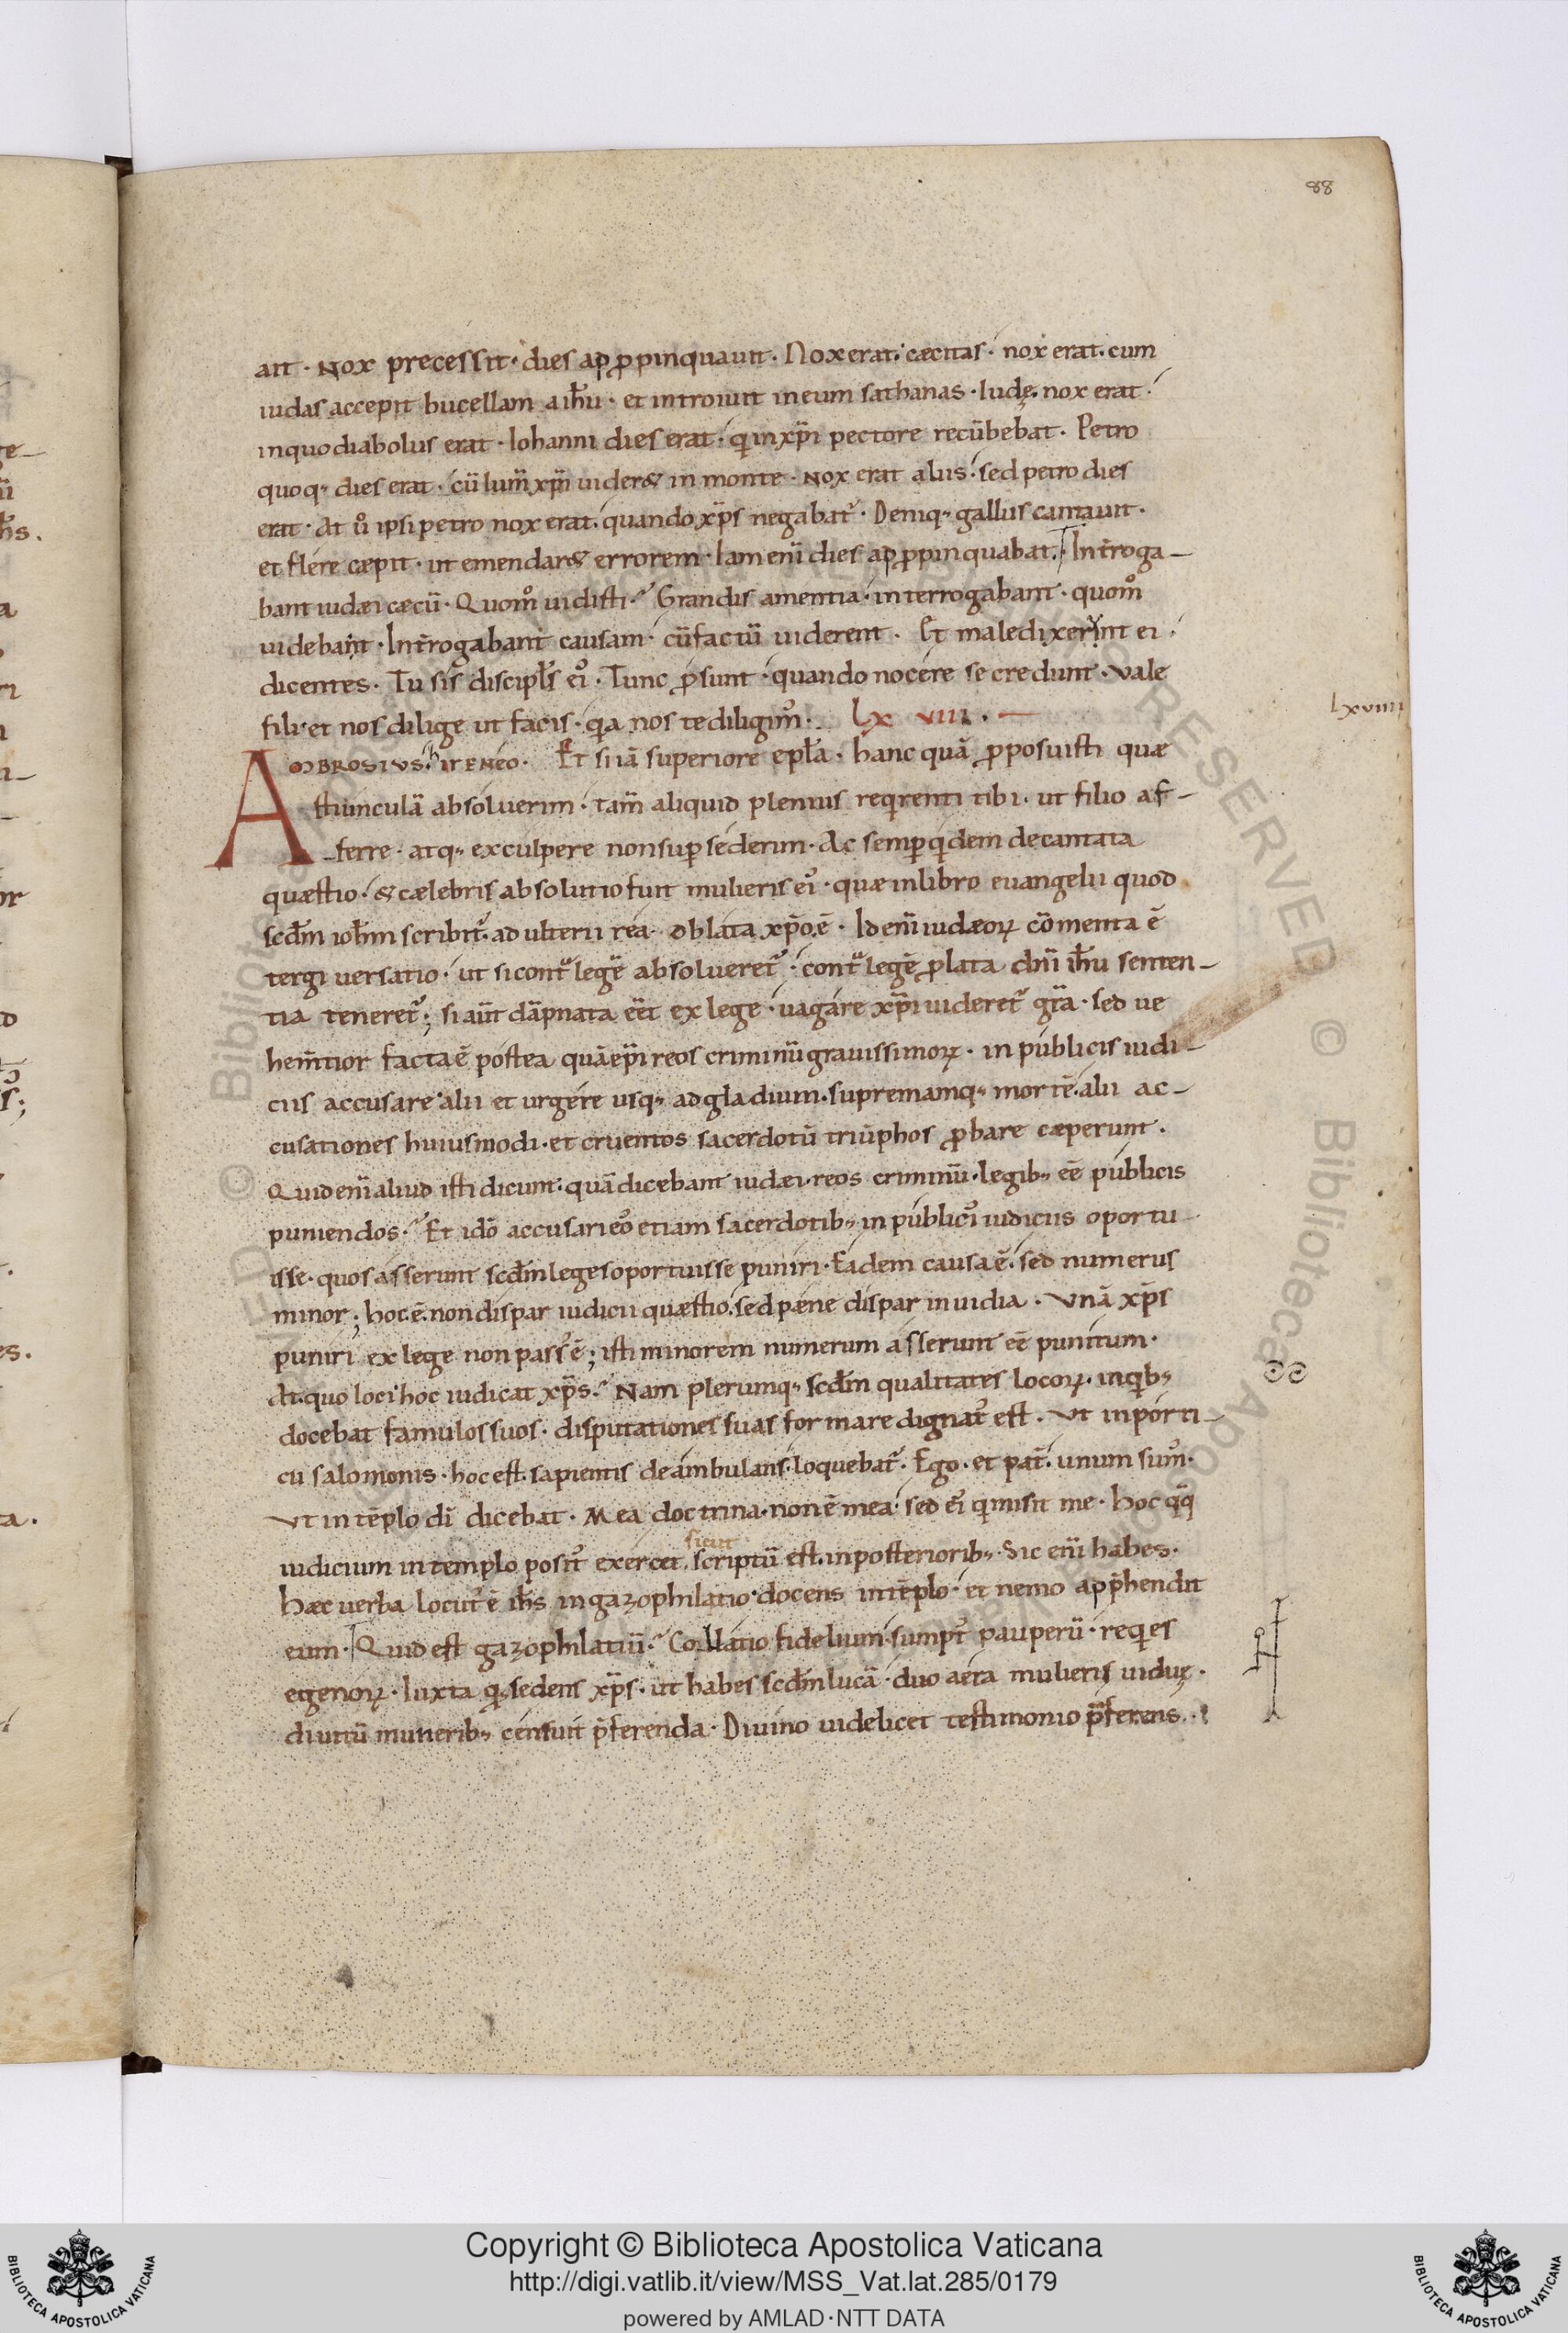 88
ait · Nox precessit · dies appropinquauit · Nox erat · cæcitas · nox erat · cum
iudas accepit bucellam a ihu · et introiuit in eum sathanas · Iudę · nox erat ·
in quo diabolus erat · Iohanni dies erat · qi in xpi pectore recūbebat · Petro
quoq; dies erat · cū lum̄ xpi uider& in monte · Nox erat aliis · sed petro dies
erat · At u° ipsi petro nox erat · quando xps negabat᷒ · Deniq; gallus cantauit ·
et flere cæpit · ut emendar& errorem · Iam enī dies appropinquabat · Int̄roga-
bant iudæi cæcū · Quom° uidisti · Grandis amentia · interrogabant · quom°
uidebant · Int̄rogabant causam · cū factū uiderent · Et maledixerint ei ·
dicentes · Tu sis discipl̄s ei᷒ · Tunc ꝓsunt · quando nocere se credunt · Vale
fili · et nos dilige ut facis · qa nos te diligim᷒ · Lx viiii ·
Lxviiii
AMBROSIVS · hIRENEO · Et si iā superiore epl̄a · hanc quā ꝓposuisti quæ
stiunculā absoluerim · tam̄ aliquid plenius reqirenti tibi · ut filio af-
ferre · atq; exculpere non suꝑsederim · Ac semꝑ qidem decantata
quæstio · & cælebris absolutio fuit mulieris ei᷒ · quæ in libro euangelii quod
scd̄m ioh̄m scribit᷒ · adulterii rea · oblata xpo ē · Id enī iudæoꝝ cōmenta ē
tergiuersatio · ut si cont legē absolueret᷒ · cont legē ꝓlata dnī ihu senten-
tia teneret᷒ ; si aūt dāpnata eēt ex lege · uagare xpi uideret᷒ gr̄a · sed ue
hem̄tior facta ē postea quā epi reos criminū grauissimoꝝ · in publicis iudi-
ciis accusare · alii et urgere usq; ad gladium · supremamq; mortē · alii ac-
cusationes huiusmodi · et cruentos sacerdotū triūphos ꝓbare cæperunt ·
Quid enī aliud isti dicunt · quā dicebant iudæi · reos criminū · legib; eē publicis
puniendos · Et idō accusari eo᷒ etiam sacerdotib; in publici᷒ iudiciis oportu-
isse · quos asserunt scd̄m leges oportuisse puniri · Eadem causa ē · sed numerus
minor ; hoc ē · non dispar iudicii quæstio · sed pæne dispar inuidia · Vnā xps
puniri ex lege non pass᷒ ē ; isti minorem numerum asserunt eē punitum ·
At · quo loci hoc iudicat xps · Nam plerumq; scd̄m qualitates locoꝝ · in qib;
docebat famulos suos · disputationes suas formare dignat᷒ est · Vt in porti-
cu salomonis · hoc est · sapientis deambulans · loquebat᷒ · Ego · et pat̄ · unum sum᷒ ·
Vt in tēplo dī dicebat · Mea doctrina · non ē mea · sed ei᷒ qi misit me · Hoc qq
iudicium in templo posit᷒ exercet · scriptū est · in posteriorib; · Sic enī habes ·
sicut
Hæc uerba locut᷒ ē ihs in gazophilatio · docens in tēplo · et nemo apphendit
eum · Quid est gazophilatiū · Collatio fidelium · sumpt᷒ pauperū · reqies
egenoꝝ · Iuxta q; sedens xps · ut habes scd̄m lucā · duo aera mulieris uiduę ·
diuitū munerib; censuit p̄ferenda · Diuino uidelicet testimonio p̄ferens ·
Copyright © Biblioteca Apostolica Vaticana
http://digi.vatlib.it/view/MSS_Vat.lat.285/0179
powered by AMLAD·NTT DATA
BIBLIOTECA APOSTOLICA VATICANA
BIBLIOTECA APOSTOLICA VATICANA